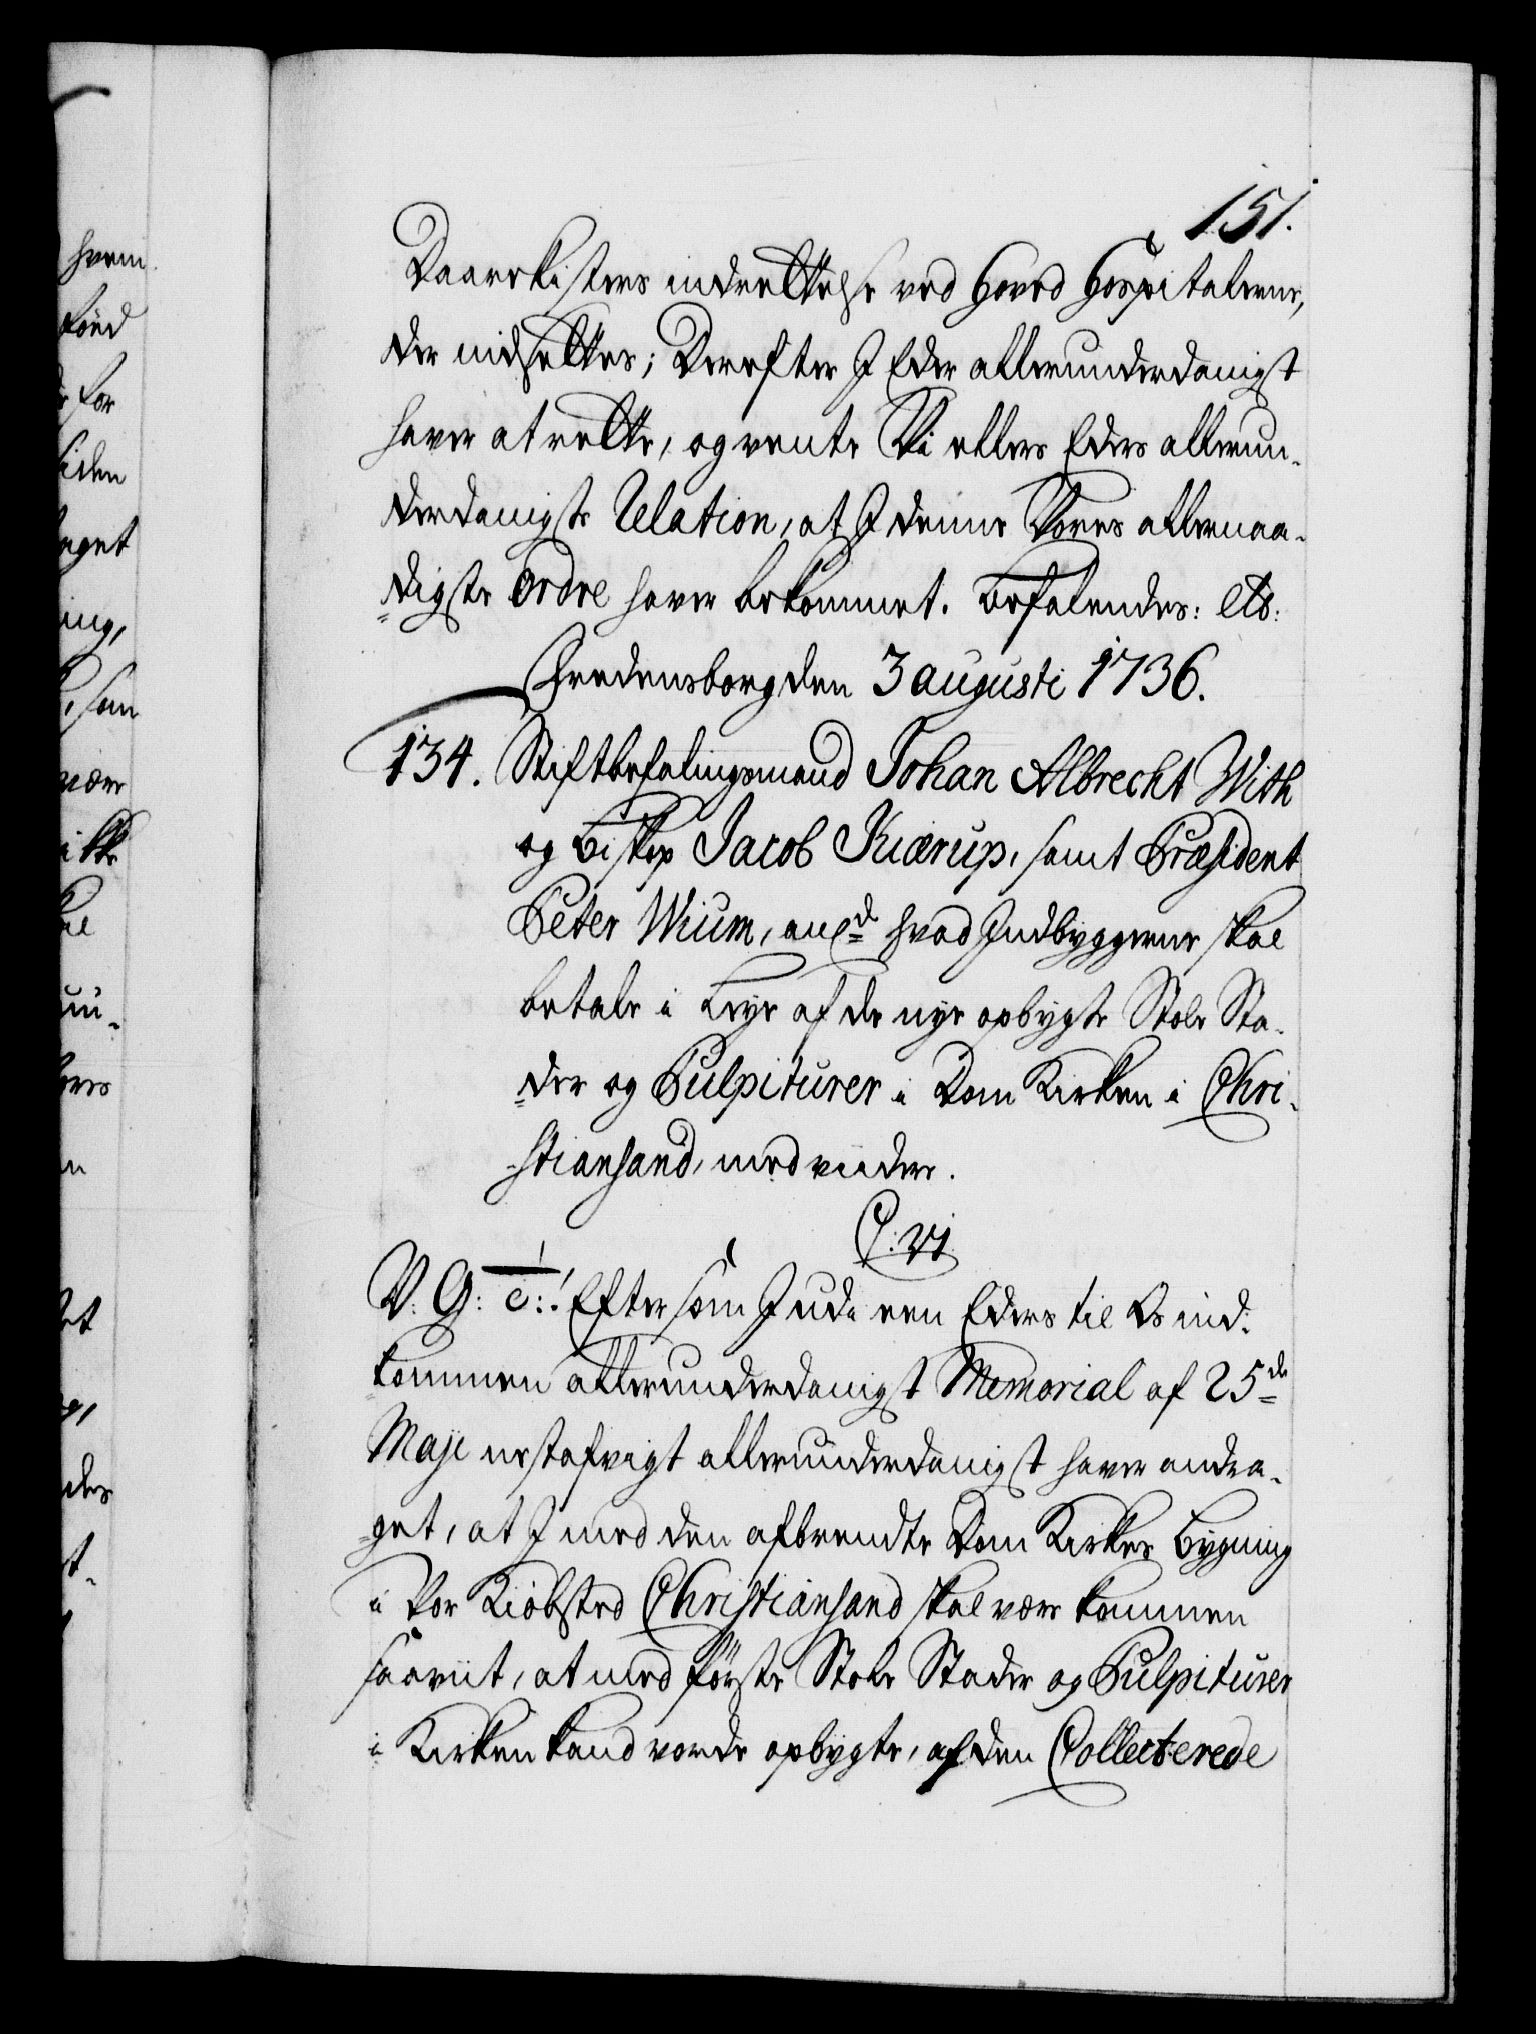 151.
Daarekisters indrettelse ved Hoved Hospitalerne,
der nidsettes; Derefter I Eder allerunderdanigst
haver at rette, og vente Vi ellers Eders allerun-
derdanigste Relation, at I denne Vores allernaa-
digste Ordre haver bekommet. Befalendes: etc:
Fredensborg den 3 augusti 1736.
134. Stiftbefalingsmand Johan Albrecht With
og Biskop Jacob Kiærup, samt Præsident
Peter Wium, anl:d hvad Indbyggerne skal
betale i Leye af de nye opbygte Stole Sta-
der og Pulpiturer i Dom Kirken i Chri-
stiansand, med viidere.
C: VI.
V: G: T:! Eftersom I udi een Eders til Os ind-
kommen allerunderdanigst Memorial af 25de
Maji nestafvigt allerunderdanigst haver andra-
get, at I med den afbrendte Dom Kirkes Bygning
i Vor Kiøbsted Christiansand skal være kommen
saaviit, at med første Stole Stader og Pulpiturer
i Kirken kand vorde opbygte, af den Collecterede
hvem
for
siden
aget
ing,
som
være
ikke